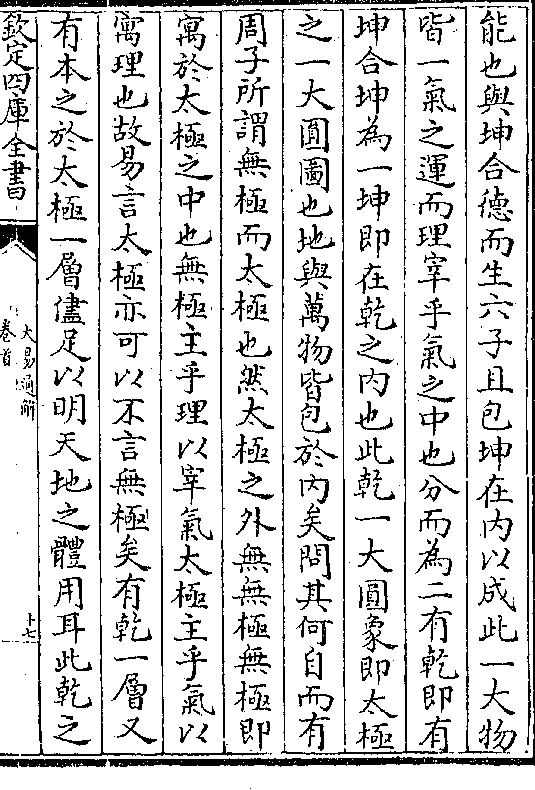 能也與坤合德而生六子且包坤在内以成此一大物
皆一氣之運而理宰乎氣之中也分而為二有乾即有
坤合坤為一坤即在乾之内也此乾一大圓象即太極
之一大圓圖也地與萬物皆包於内矣問其何自而有
周子所謂無極而太極也然太極之外無無極無極即
寓於太極之中也無極主乎理以宰氣太極主乎氣以
寓理也故易言太極亦可以不言無極矣有乾一層又
有本之於太極一層儘足以明天地之體用耳此乾之
欽定四庫全書
大易通解
卷首
十七